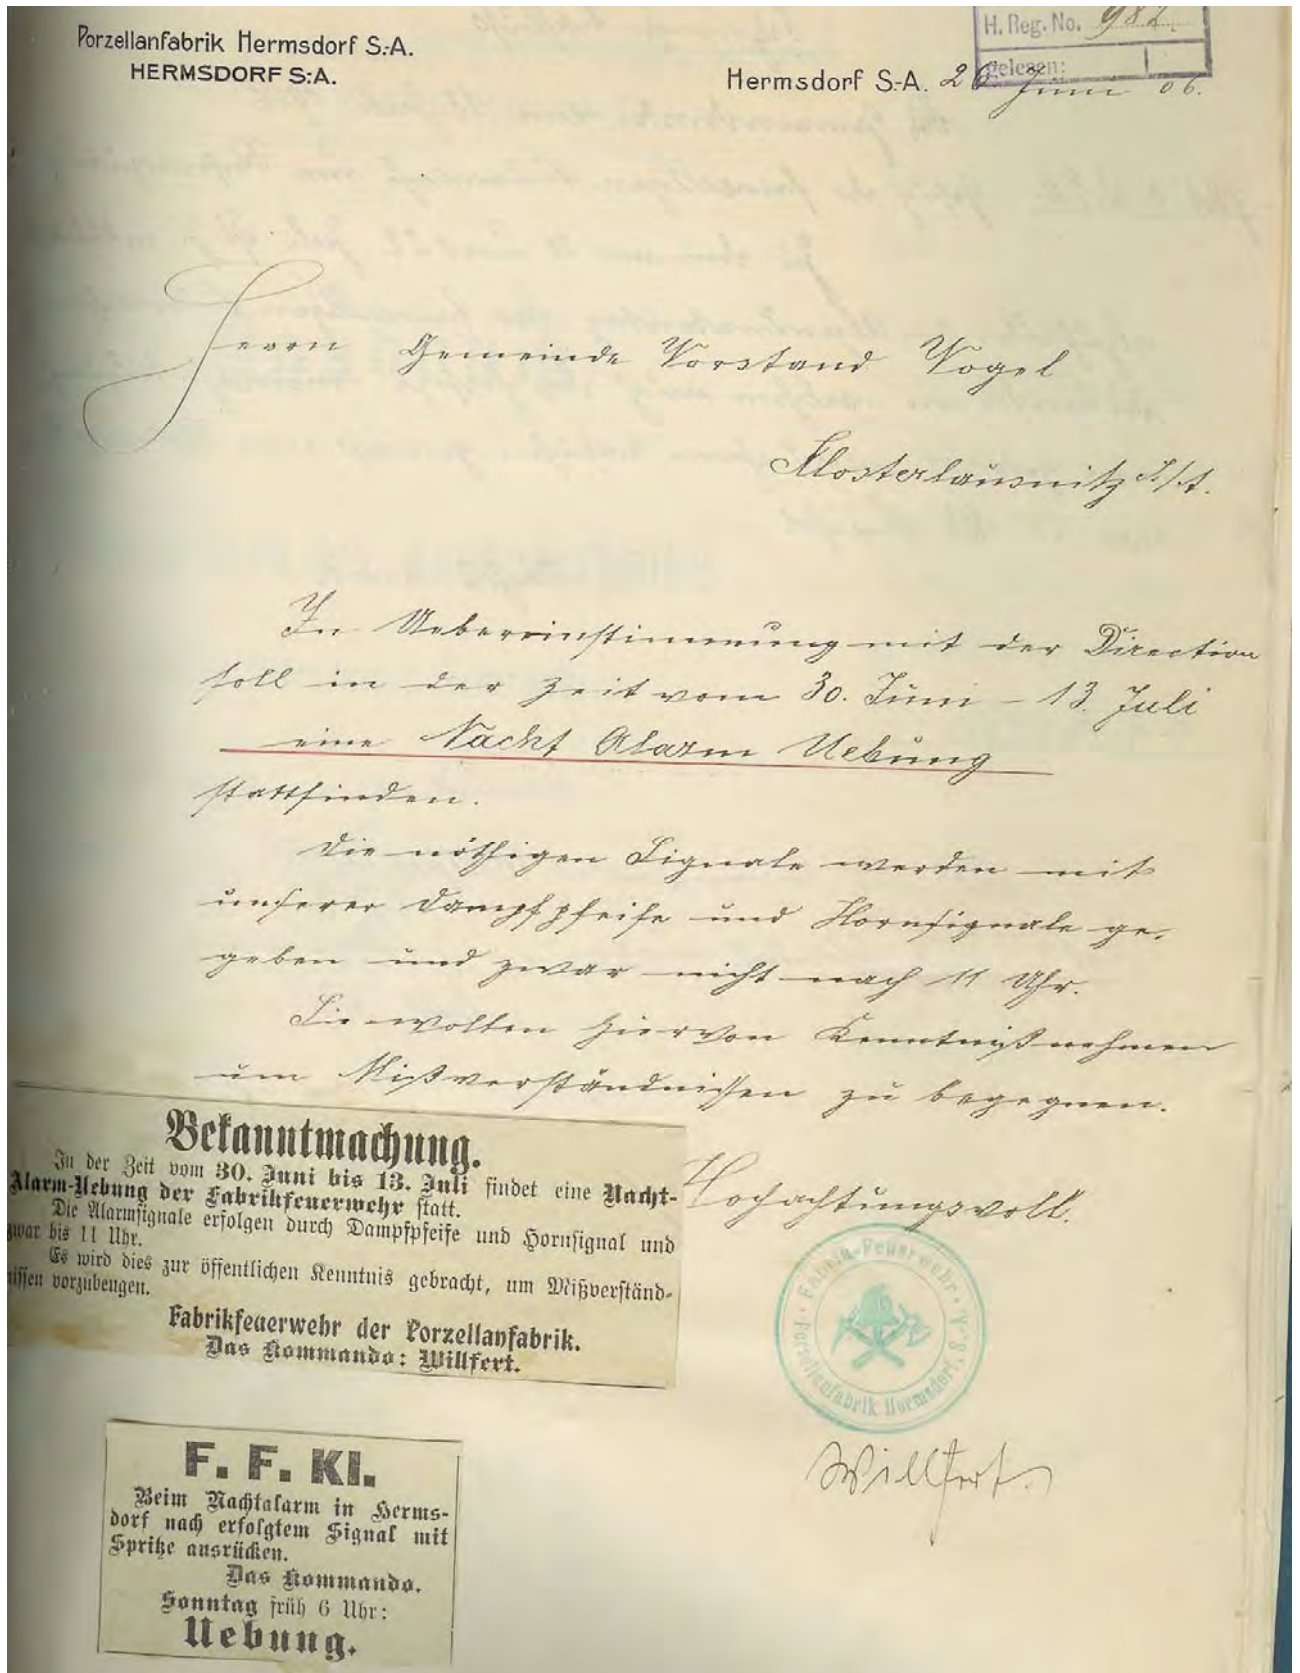 Porzellanfabrik Hermsdorf S.-A.
HERMSDORF S.-A.
H. Reg. No. 982
gelesen:
Hermsdorf S.-A. 26. Juni 06.
Herrn Gemeinde Vorstand Vogel
Klosterlausnitz S./A.
In Uebereinstimmung mit der Direction
soll in der Zeit vom 30. Juni - 13. Juli
eine Nacht Alarm Uebung
stattfinden.
Die nöthigen Signale werden mit
unserer Dampfpfeife und Hornsignale ge-
geben und zwar nicht nach 11 Uhr.
Sie wollen hiervon Kenntniß nehmen
um Mißverständnissen zu begegnen.
Hochachtungsvoll.
Fabrik-Feuerwehr
Porzellanfabrik Hermsdorf, S.-A.
Willfert.
Bekanntmachung.
In der Zeit vom 30. Juni bis 13. Juli findet eine Nacht-
Alarm-Uebung der Fabrikfeuerwehr statt.
Die Alarmsignale erfolgen durch Dampfpfeife und Hornsignal und
zwar bis 11 Uhr.
Es wird dies zur öffentlichen Kenntnis gebracht, um Mißverständ-
nissen vorzubeugen.
Fabrikfeuerwehr der Porzellanfabrik.
Das Kommando: Willfert.
F. F. Kl.
Beim Nachtalarm in Herms-
dorf nach erfolgtem Signal mit
Spritze ausrücken.
Das Kommando.
Sonntag früh 6 Uhr:
Uebung.